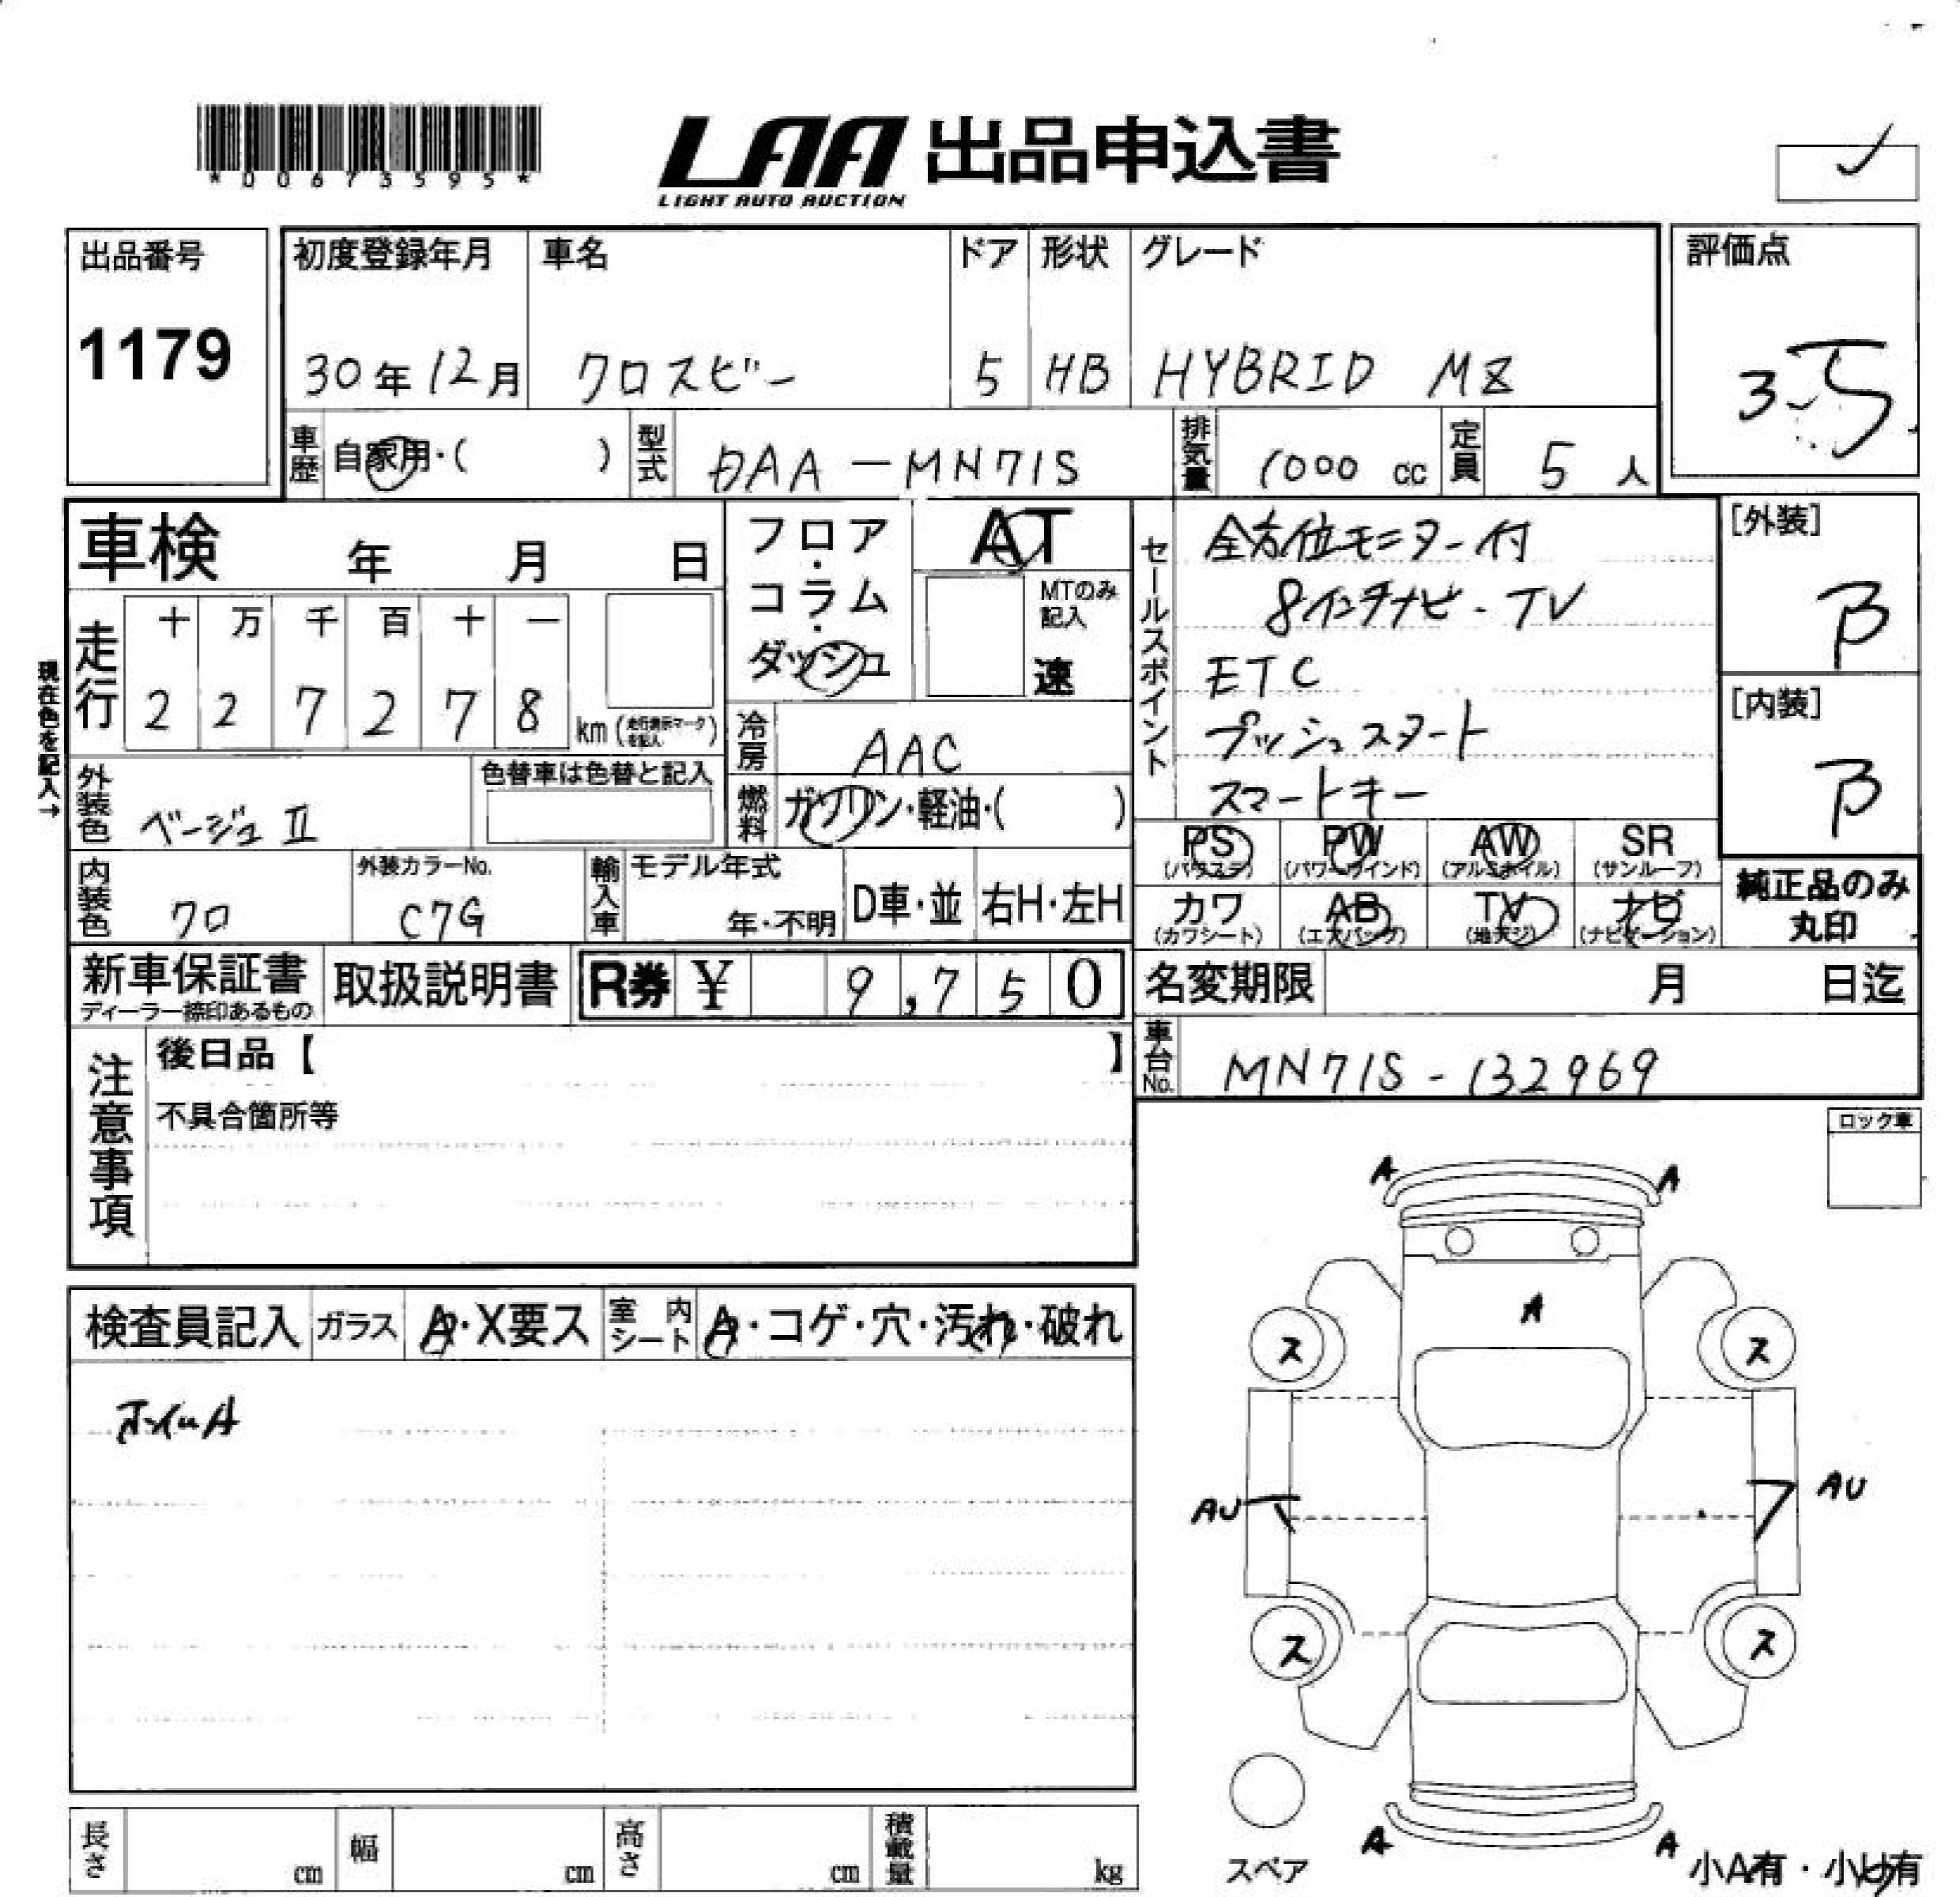 *00673595*
LAA 出品申込書
LIGHT AUTO AUCTION
出品番号
1179
初度登録年月
30年12月
車名
クロスビー
ドア
5
形状
HB
グレード
HYBRID MZ
評価点
3.5
車歴
自家用・( )
型式
DAA-MN71S
排気量
1000 cc
定員
5 人
車検 年 月 日
フロア・コラム・ダッシュ
AT
MTのみ記入
速
現在色を記入→
走行
十 万 千 百 十 一
2 2 7 2 7 8
km (走行表示マークを記入)
冷房
AAC
外装色
ベージュII
色替車は色替と記入
燃料
ガソリン・軽油・( )
内装色
クロ
外装カラーNo.
C7G
輸入車
モデル年式
年・不明
D車・並
右H・左H
セールスポイント
全方位モニター付
8インチナビ・TV
ETC
プッシュスタート
スマートキー
[外装]
B
[内装]
B
PS
(パワステ)
PW
(パワーウインド)
AW
(アルミホイル)
SR
(サンルーフ)
カワ
(カワシート)
AB
(エアバッグ)
TV
(地デジ)
ナビ
(ナビゲーション)
純正品のみ
丸印
新車保証書
ディーラー捺印あるもの
取扱説明書
R券 ¥ 9,750
名変期限 月 日迄
車台No.
MN71S-132969
注意事項
後日品【 】
不具合箇所等
ロック車
検査員記入
ガラス
A・X要ス
室内シート
A・コゲ・穴・汚れ・破れ
ホイールA
A A
A
ス ス
AU AU
ス ス
A A
スペア
小A有・小U有
長さ cm
幅 cm
高さ cm
積載量 kg